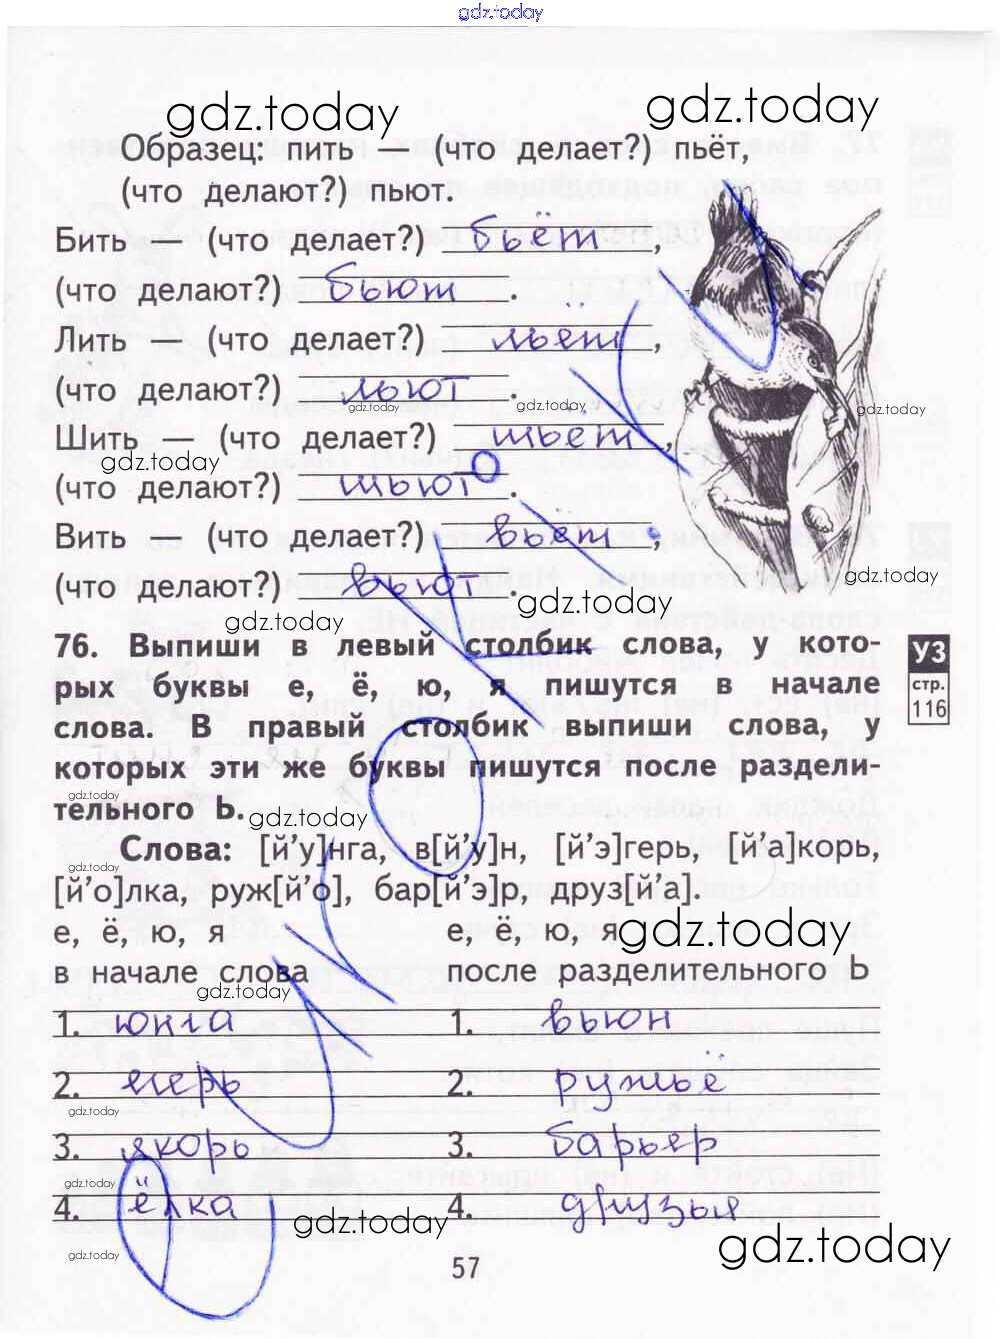 gdz.today
gdz.today
gdz.today
Образец: пить — (что делает?) пьёт,
(что делают?) пьют.
Бить — (что делает?) бьёт,
(что делают?) бьют.
Лить — (что делает?) льёт,
(что делают?) льют.
gdz.today gdz.today gdz.today
Шить — (что делает?) шьёт,
gdz.today
(что делают?) шьют.
Вить — (что делает?) вьёт,
gdz.today
(что делают?) вьют.
gdz.today
gdz.today
76. Выпиши в левый столбик слова, у кото-
рых буквы е, ё, ю, я пишутся в начале
слова. В правый столбик выпиши слова, у
которых эти же буквы пишутся после раздели-
тельного Ь.
УЗ
стр.
116
gdz.today
gdz.today
Слова: [й’у]нга, в[й’у]н, [й’э]герь, [й’а]корь,
gdz.today
[й’о]лка, руж[й’о], бар[й’э]р, друз[й’а].
е, ё, ю, я е, ё, ю, я
gdz.today
в начале слова после разделительного Ь
gdz.today
1. юнга 1. вьюн
2. егерь 2. ружьё
gdz.today
3. якорь 3. барьер
gdz.today
4. ёлка 4. друзья
gdz.today
gdz.today
gdz.today
57